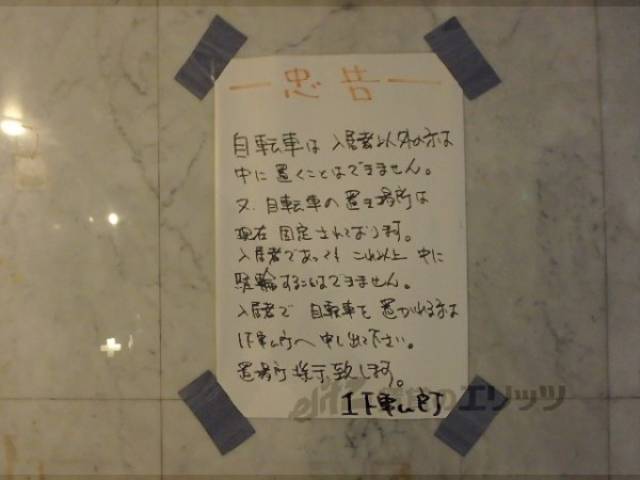 ― 忠告 ―
自転車は 入居者以外の方は
中に置くことはできません。
又、自転車の置き場所は
現在 固定されております。
入居者であっても これ以上 中に
駐輪することはできません。
入居者で 自転車を 置かれる方は
へ申し出て下さい。
置場所 指示致します。
elitz エリッツ